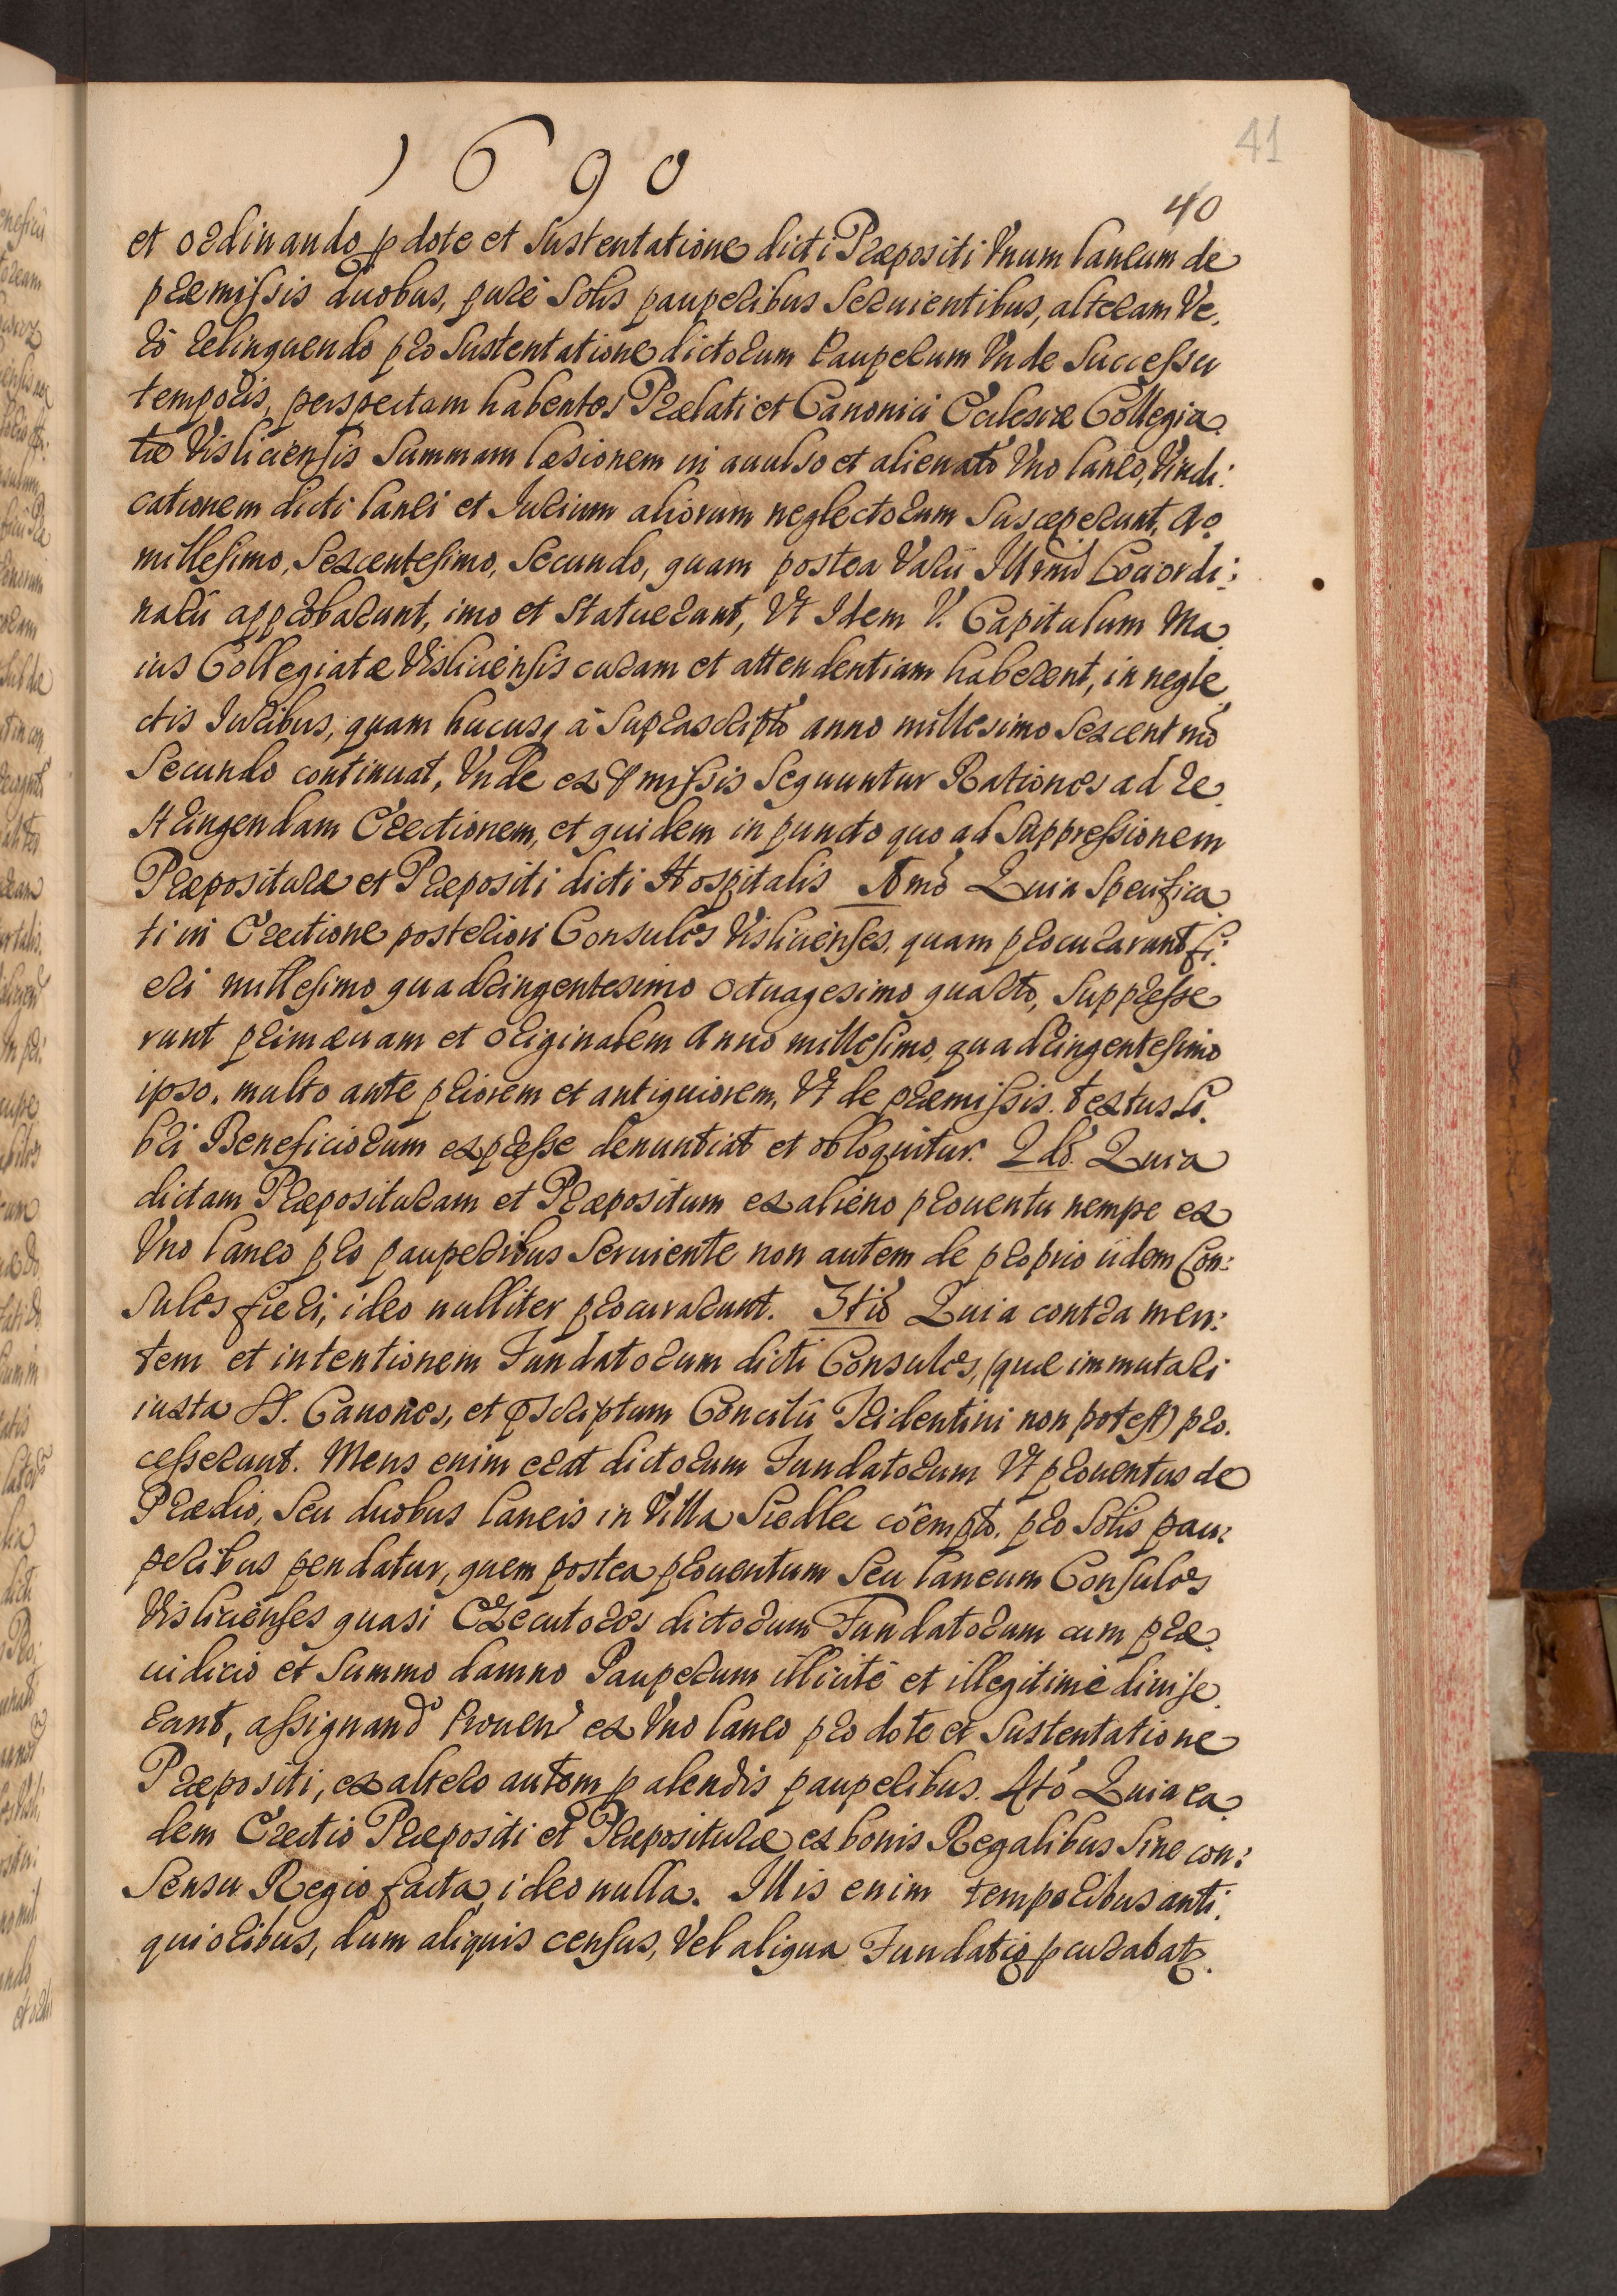 1690
41
40
et ordinando p dote et sustentatione dicti Præpositi Vnum laneum de
præmissis duobus, purè Solis pauperibus Seruientibus, alteram Ve,
rò relinquendo pro Sustentatione dictorum Pauperum Vnde Successu
temporis, perspectam habentes Prælati et Canonici Ecclesiæ Collegia,
tæ Visliciensis Summam læsionem in auulso et alienato Vno laneo, Vindi:
cationem dicti lanei et Iurium aliorum neglectorum Susceperunt, Ao
millesimo, Sexcentesimo, Secundo, quam postea Varii Illrmi Loci ordi:
narii approbarunt, imo et Statuerunt, Vt Idem V. Capitulum Ma,
ius Collegiatæ Visliciensis curam et attendentiam haberent, in negle,
ctis Iuribus, quam hucusq à Suprascripto anno millesimo Sexcentmo
Secundo continuat, Vnde ex pmissis Sequuntur Rationes ad re,
stringendam Erectionem, et quidem in puncto quo ad Suppressionem
Præposituræ et Præpositi dicti Hospitalis 1mo Quia Specifica,
ti in Erectione posteriori Consules Vislicienses, quam procurarunt fi,
eri millesimo quadringentesimo octuagesimo quarto, Suppresse
runt primæuam et originalem Anno millesimo, quadringentesimo
ipso, multo ante priorem et antiquiorem, Vt de præmissis textus Li,
bri Beneficiorum expresse denuntiat et obloquitur. 2dò. Quia
dictam Præposituram et Præpositum ex alieno prouentu nempe ex
Vno laneo pro pauperibus Seruiente non autem de proprio iidem Con:
sules fieri, ideo nulliter procurarunt. 3tiò Quia contra men:
tem et intentionem Fundatorum dicti Consules, (quæ immutari
iuxta SS. Canones, et pscriptum Concilii Tridentini non potest) pro,
cesserunt. Mens enim erat dictorum Fundatorum Vt prouentus de
Prædio, Seu duobus laneis in Villa Siedlec coempto, pro Solis pau:
peribus pendatur, quem postea prouentum Seu laneum Consules
Vislicienses quasi Executores dictorum Fundatorum cum præ,
iudicio et Summo damno Pauperum illicitè et illegitimè diuise,
runt, assignand Prouen ex Vno laneo pro dote et Sustentatione
Præpositi, ex altero autem p alendis pauperibus. 4tò Quia ea,
dem Erectio Præpositi et Præposituræ ex bonis Regalibus Sine con:
Sensu Regio facta, ideo nulla. Illis enim temporibus anti,
quioribus, dum aliquis census, Vel aliqua Fundatio pcurabat.